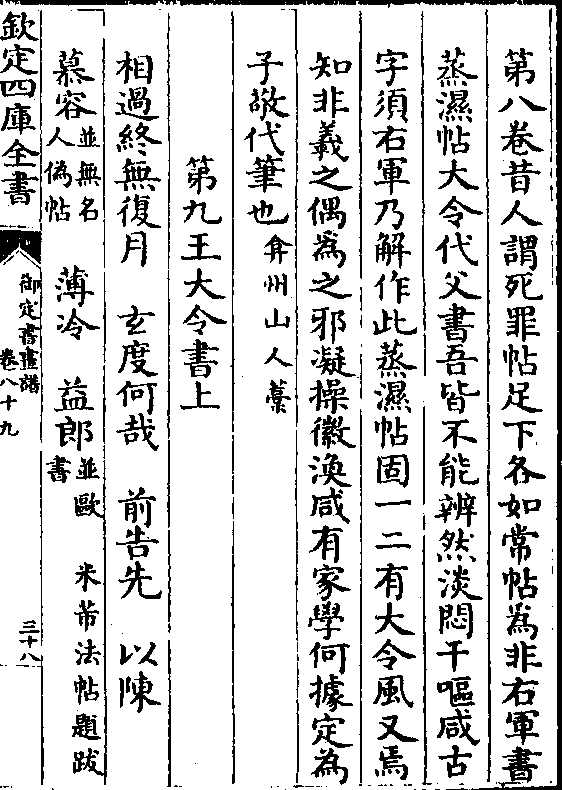 第八卷昔人謂死罪帖足下各如常帖為非右軍書
蒸濕帖大令代父書吾皆不能辨然淡悶干嘔咸古
字須右軍乃解作此蒸濕帖固一二有大令風又焉
知非羲之偶為之邪凝操徽渙咸有家學何據定為
子敬代筆也 弇州山人藁
第九王大令書上
相過終無復月 玄度何哉 前告先 以陳
慕容並無名人偽帖 薄冷 益郎並歐書 米芾法帖題跋
欽定四庫全書 御定書畫譜 卷八十九 三十八